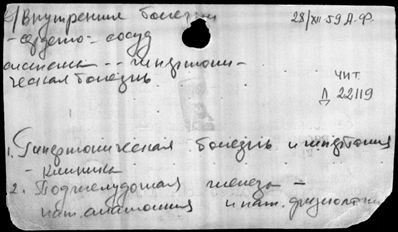 б/ Внутренние болезни 28/XII 59 А.Ф.
- сердечно- сосуд
система -- гипертони-
ческая болезнь
чит.
Д 22119
1. Гипертоническая болезнь и гипотония
- клиника
2. Поджелудочная железа -
пат. анатомия и пат. физиология